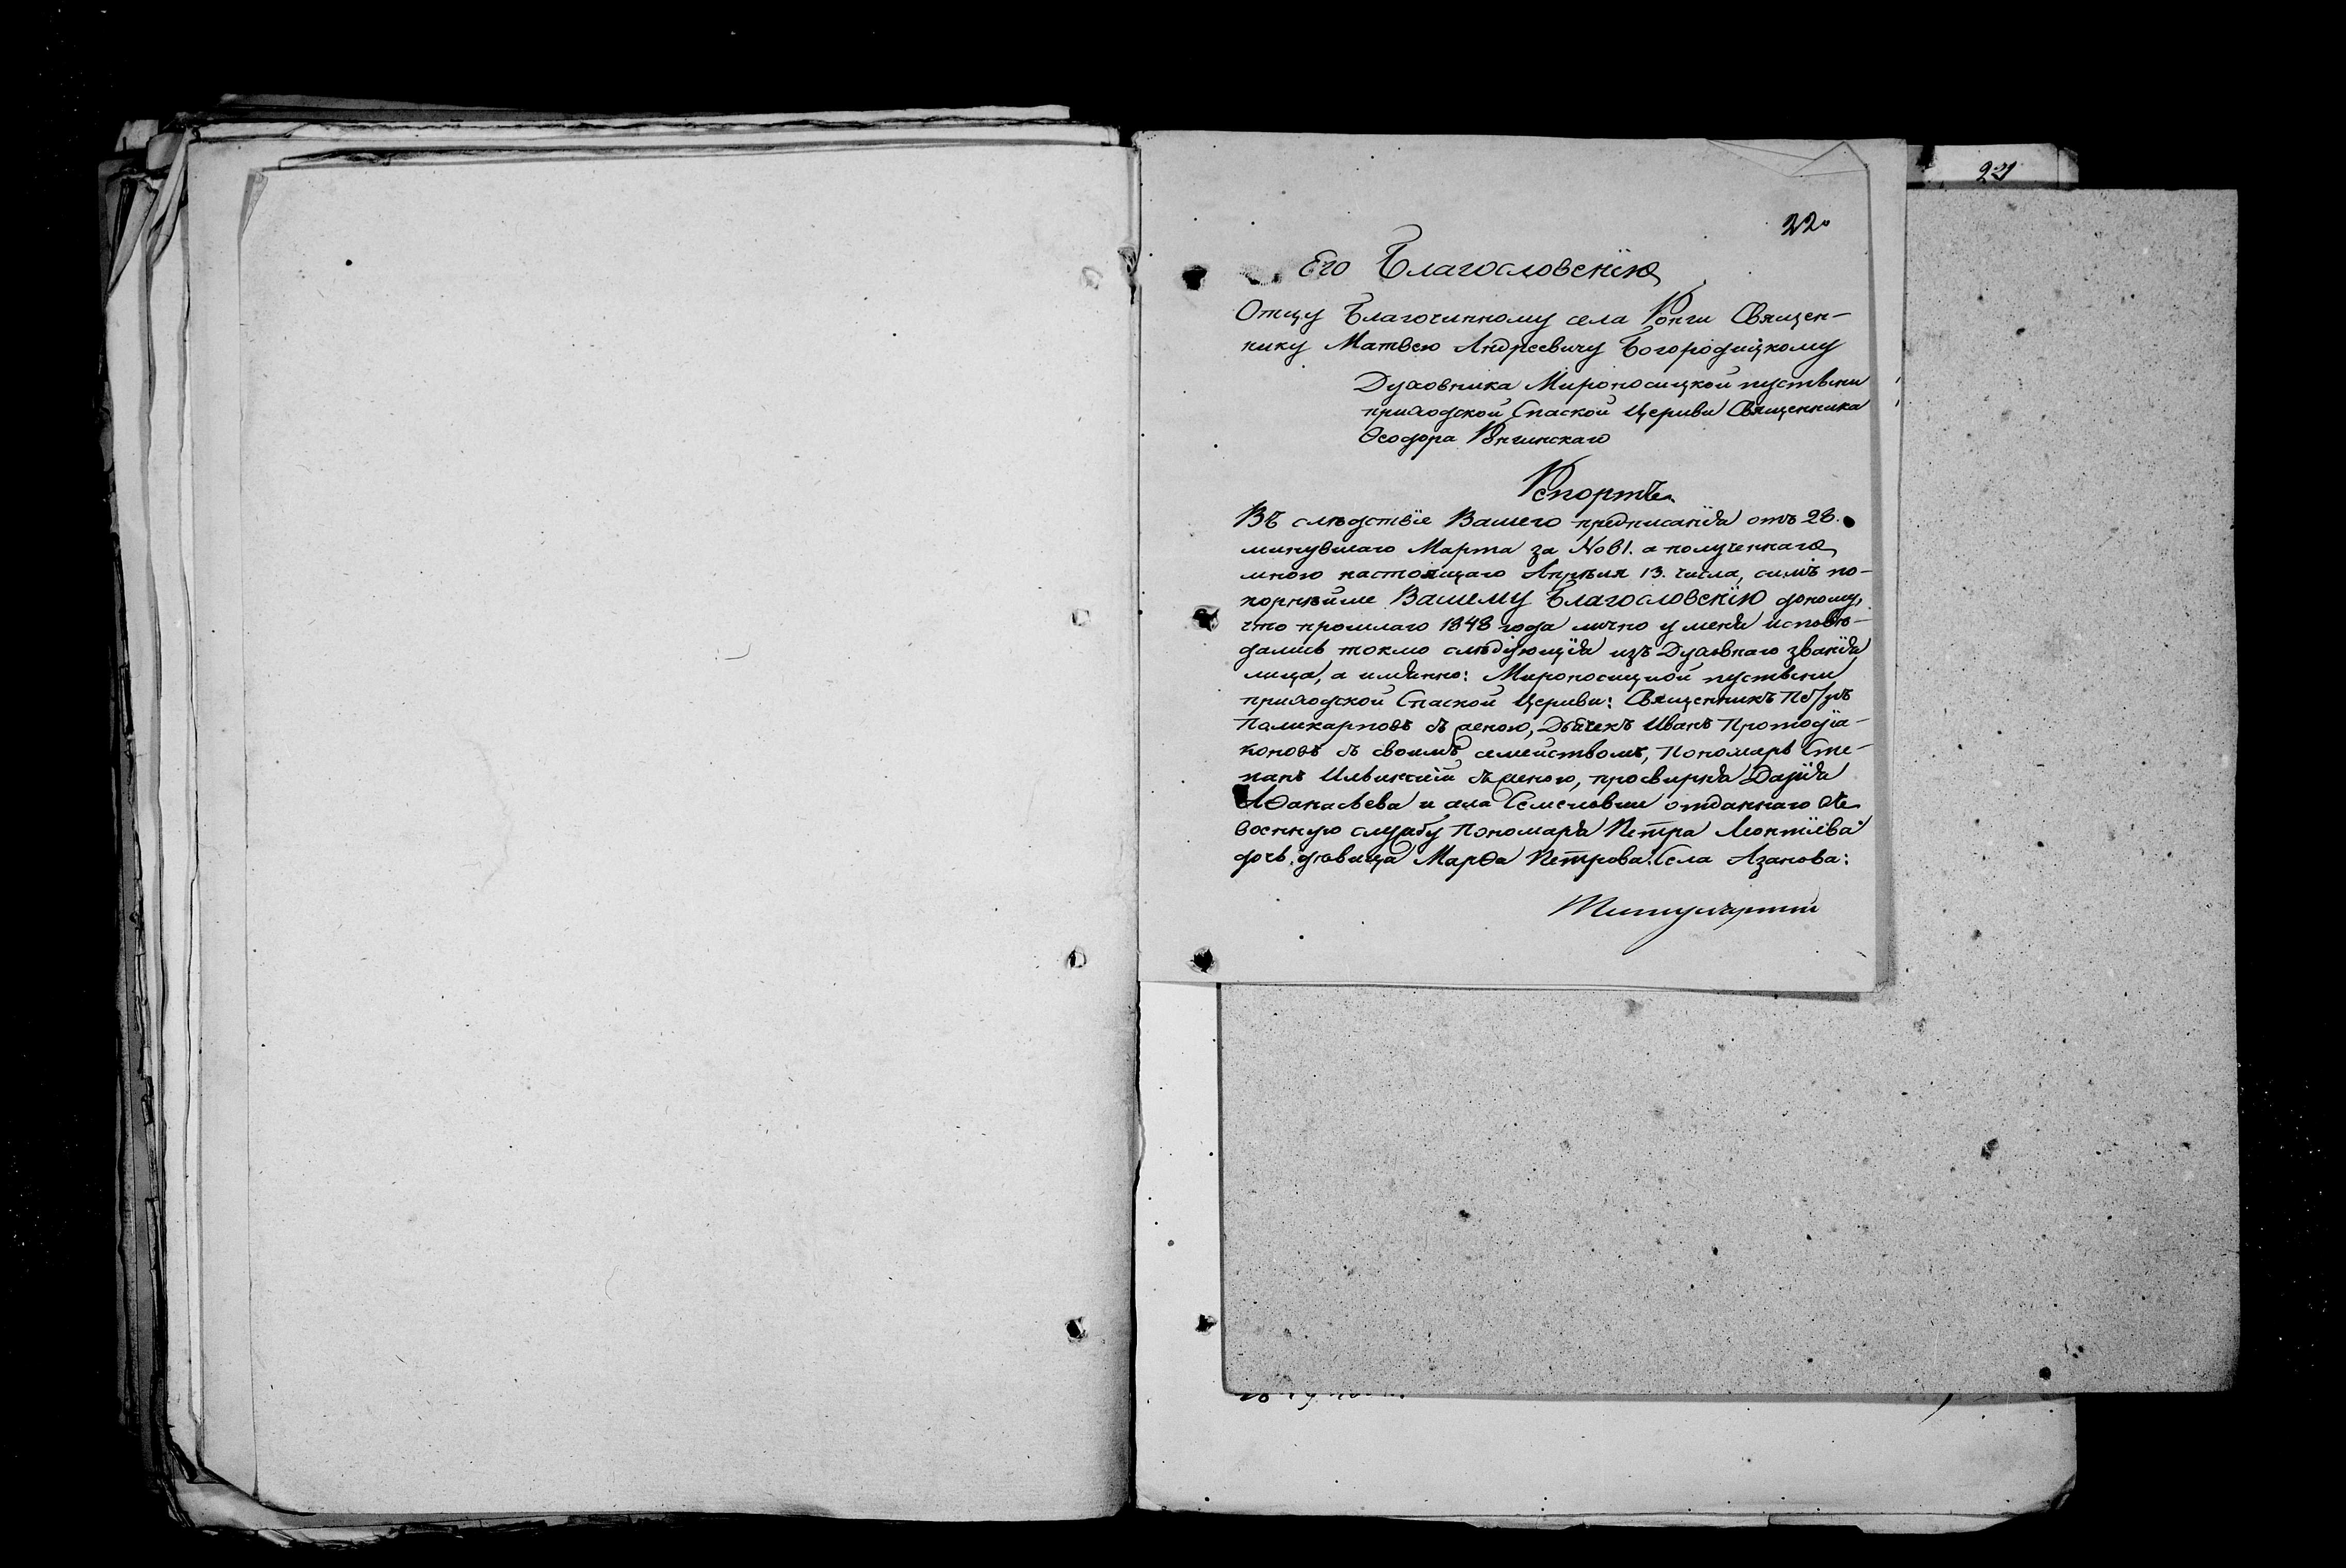 21
22
Его Благословенію
Отцу Благочинному села Ронги Священ-
нику Матвею Андреевичу Богородицкому
Духовника Мироносицкой пустыни
приходской Спаской Церкви Священника
Ѳеодора Ронгинскаго
Репортъ
Въ слѣдствіе Вашего предписанія отъ 28.
минувшаго Марта за №61. а полученнаго
мною настоящаго Апрѣля 13. числа, симъ по-
корнѣйше Вашему Благословенію доношу,
что прошлаго 1848 года лично у меня исповѣ-
дались токмо слѣдующія изъ Духовнаго званія
лица, а имянно: Мироносицкой пустыни
приходской Спаской Церкви: Священникъ Петръ
Поликарповъ съ женою, Дьячекъ Иванъ Протодіа-
коновъ съ своимъ семействомъ, Пономарь Сте-
панъ Ильинскій съ женою, просвирня Дарія
Аѳанасьева и села Семеловки отданнаго въ
военную службу Пономаря Петра Леонтіева
дочь дѣвица Марѳа Петрова. Села Азанова: